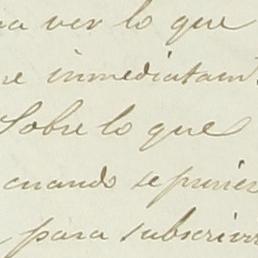 ver lo que
inmediatam
Sobre lo que
cuando se
para subscrivir